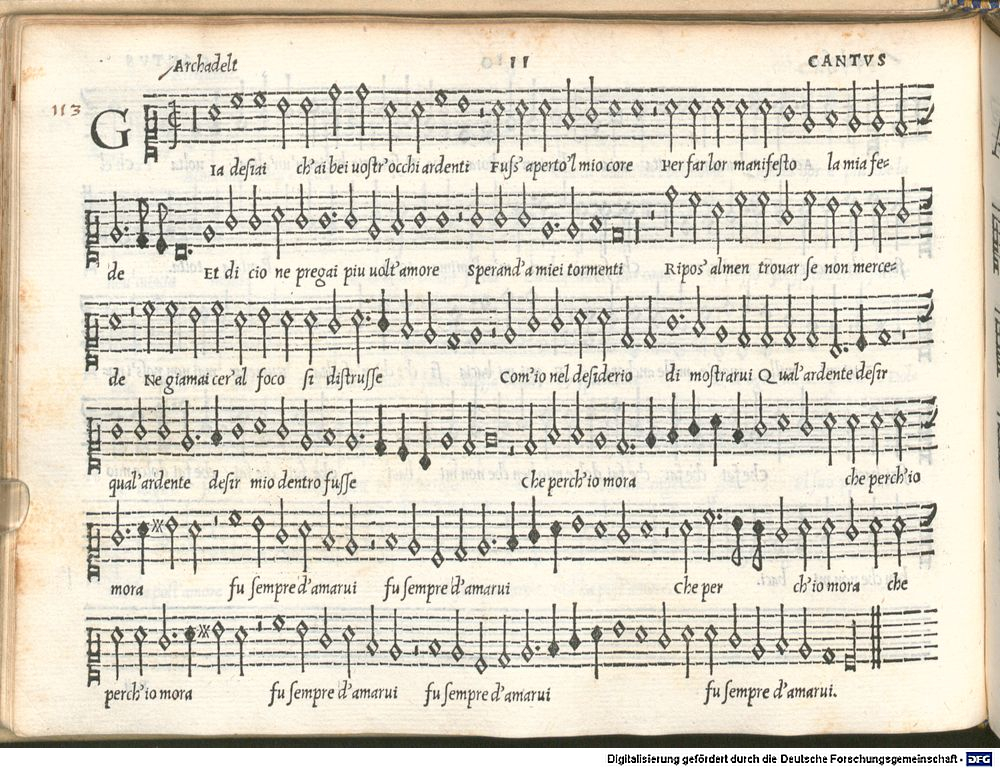 Archadelt 11 CANTVS
113
GIa desiai ch'ai bei uostr'occhi ardenti Fuss'aperto'l mio core Per far lor manifesto la mia fe=
de Et di cio ne pregai piu uolt'amore Sperand'a miei tormenti Ripos'almen trouar se non merce=
de Ne giamai cer'al foco si distrusse Com'io nel desiderio di mostrarui Qual'ardente desir
qual'ardente desir mio dentro fusse che perch'io mora che perch'io
mora fu sempre d'amarui fu sempre d'amarui che per ch'io mora che
perch'io mora fu sempre d'amarui fu sempre d'amarui fu sempre d'amarui.
Digitalisierung gefördert durch die Deutsche Forschungsgemeinschaft - DFG